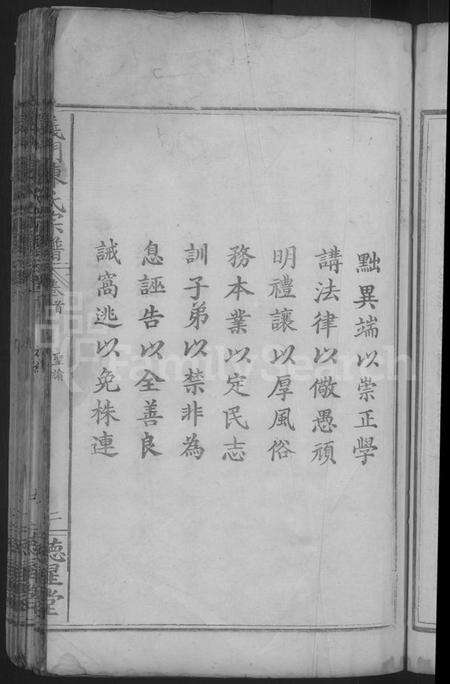 黜異端以崇正學
講法律以儆愚頑
明禮讓以厚風俗
務本業以定民志
訓子弟以禁非為
息誣告以全善良
誡窩逃以免株連
義門陳氏宗譜
卷首
聖諭
二
德星堂
FamilySearch